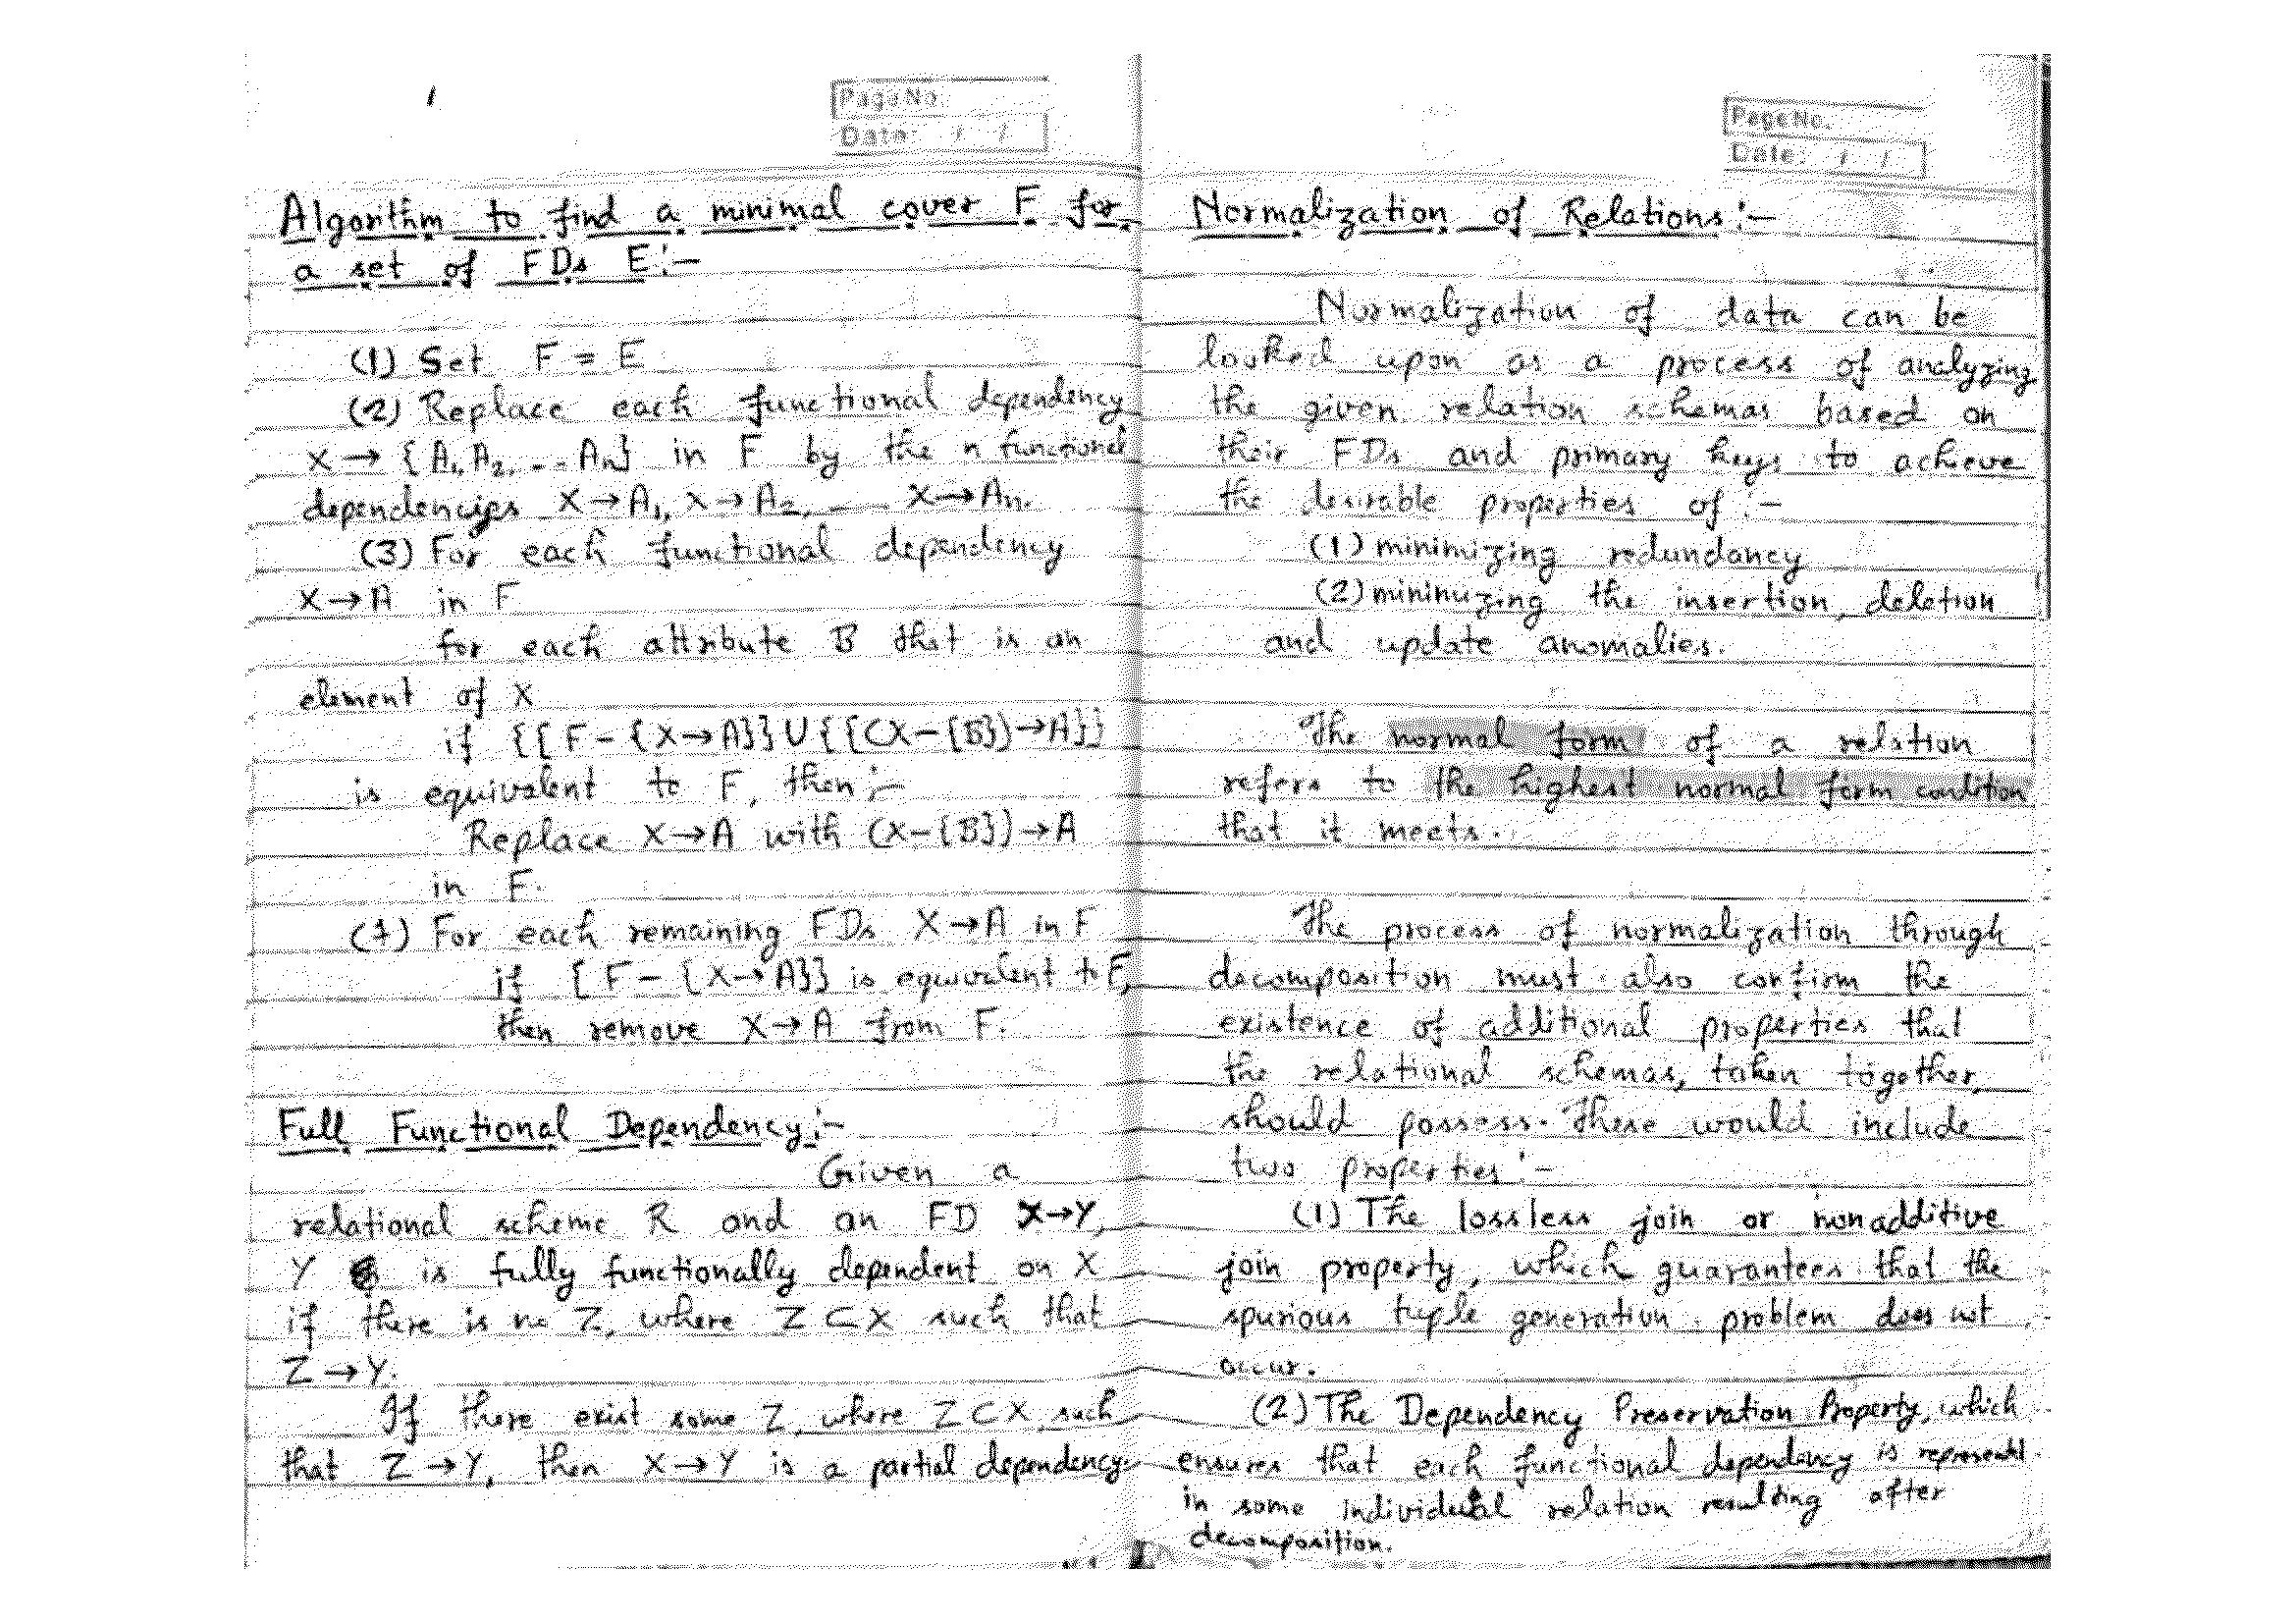 Page No.
Date: / /
Algorithm to find a minimal cover F for
a set of FDs E:-
(1) Set F = E
(2) Replace each functional dependency
X → {A1, A2, ... An} in F by the n functional
dependencies X→A1, X→A2, .... X→An.
(3) For each functional dependency
X→A in F
for each attribute B that is an
element of X
if {{F-{X→A}}U{{(X-{B})→A}}
is equivalent to F, then:-
Replace X→A with (X-{B})→A
in F.
(4) For each remaining FDs X→A in F
if {F-{X→A}} is equivalent to F,
then remove X→A from F.
Full Functional Dependency:-
Given a
relational scheme R and an FD X→Y,
Y is fully functionally dependent on X
if there is no Z, where Z⊂X such that
Z→Y.
If there exist some Z, where Z⊂X, such
that Z→Y, then X→Y is a partial dependency.
Page No.
Date: / /
Normalization of Relations:-
Normalization of data can be
looked upon as a process of analyzing
the given relation schemas based on
their FDs and primary keys to achieve
the desirable properties of:-
(1) minimizing redundancy
(2) minimizing the insertion, deletion
and update anomalies.
The normal form of a relation
refers to the highest normal form condition
that it meets.
The process of normalization through
decomposition must also confirm the
existence of additional properties that
the relational schemas, taken together,
should possess. These would include
two properties:-
(1) The lossless join or nonadditive
join property, which guarantees that the
spurious tuple generation problem does not
occur.
(2) The Dependency Preservation Property, which
ensures that each functional dependency is represented
in some individual relation resulting after
decomposition.